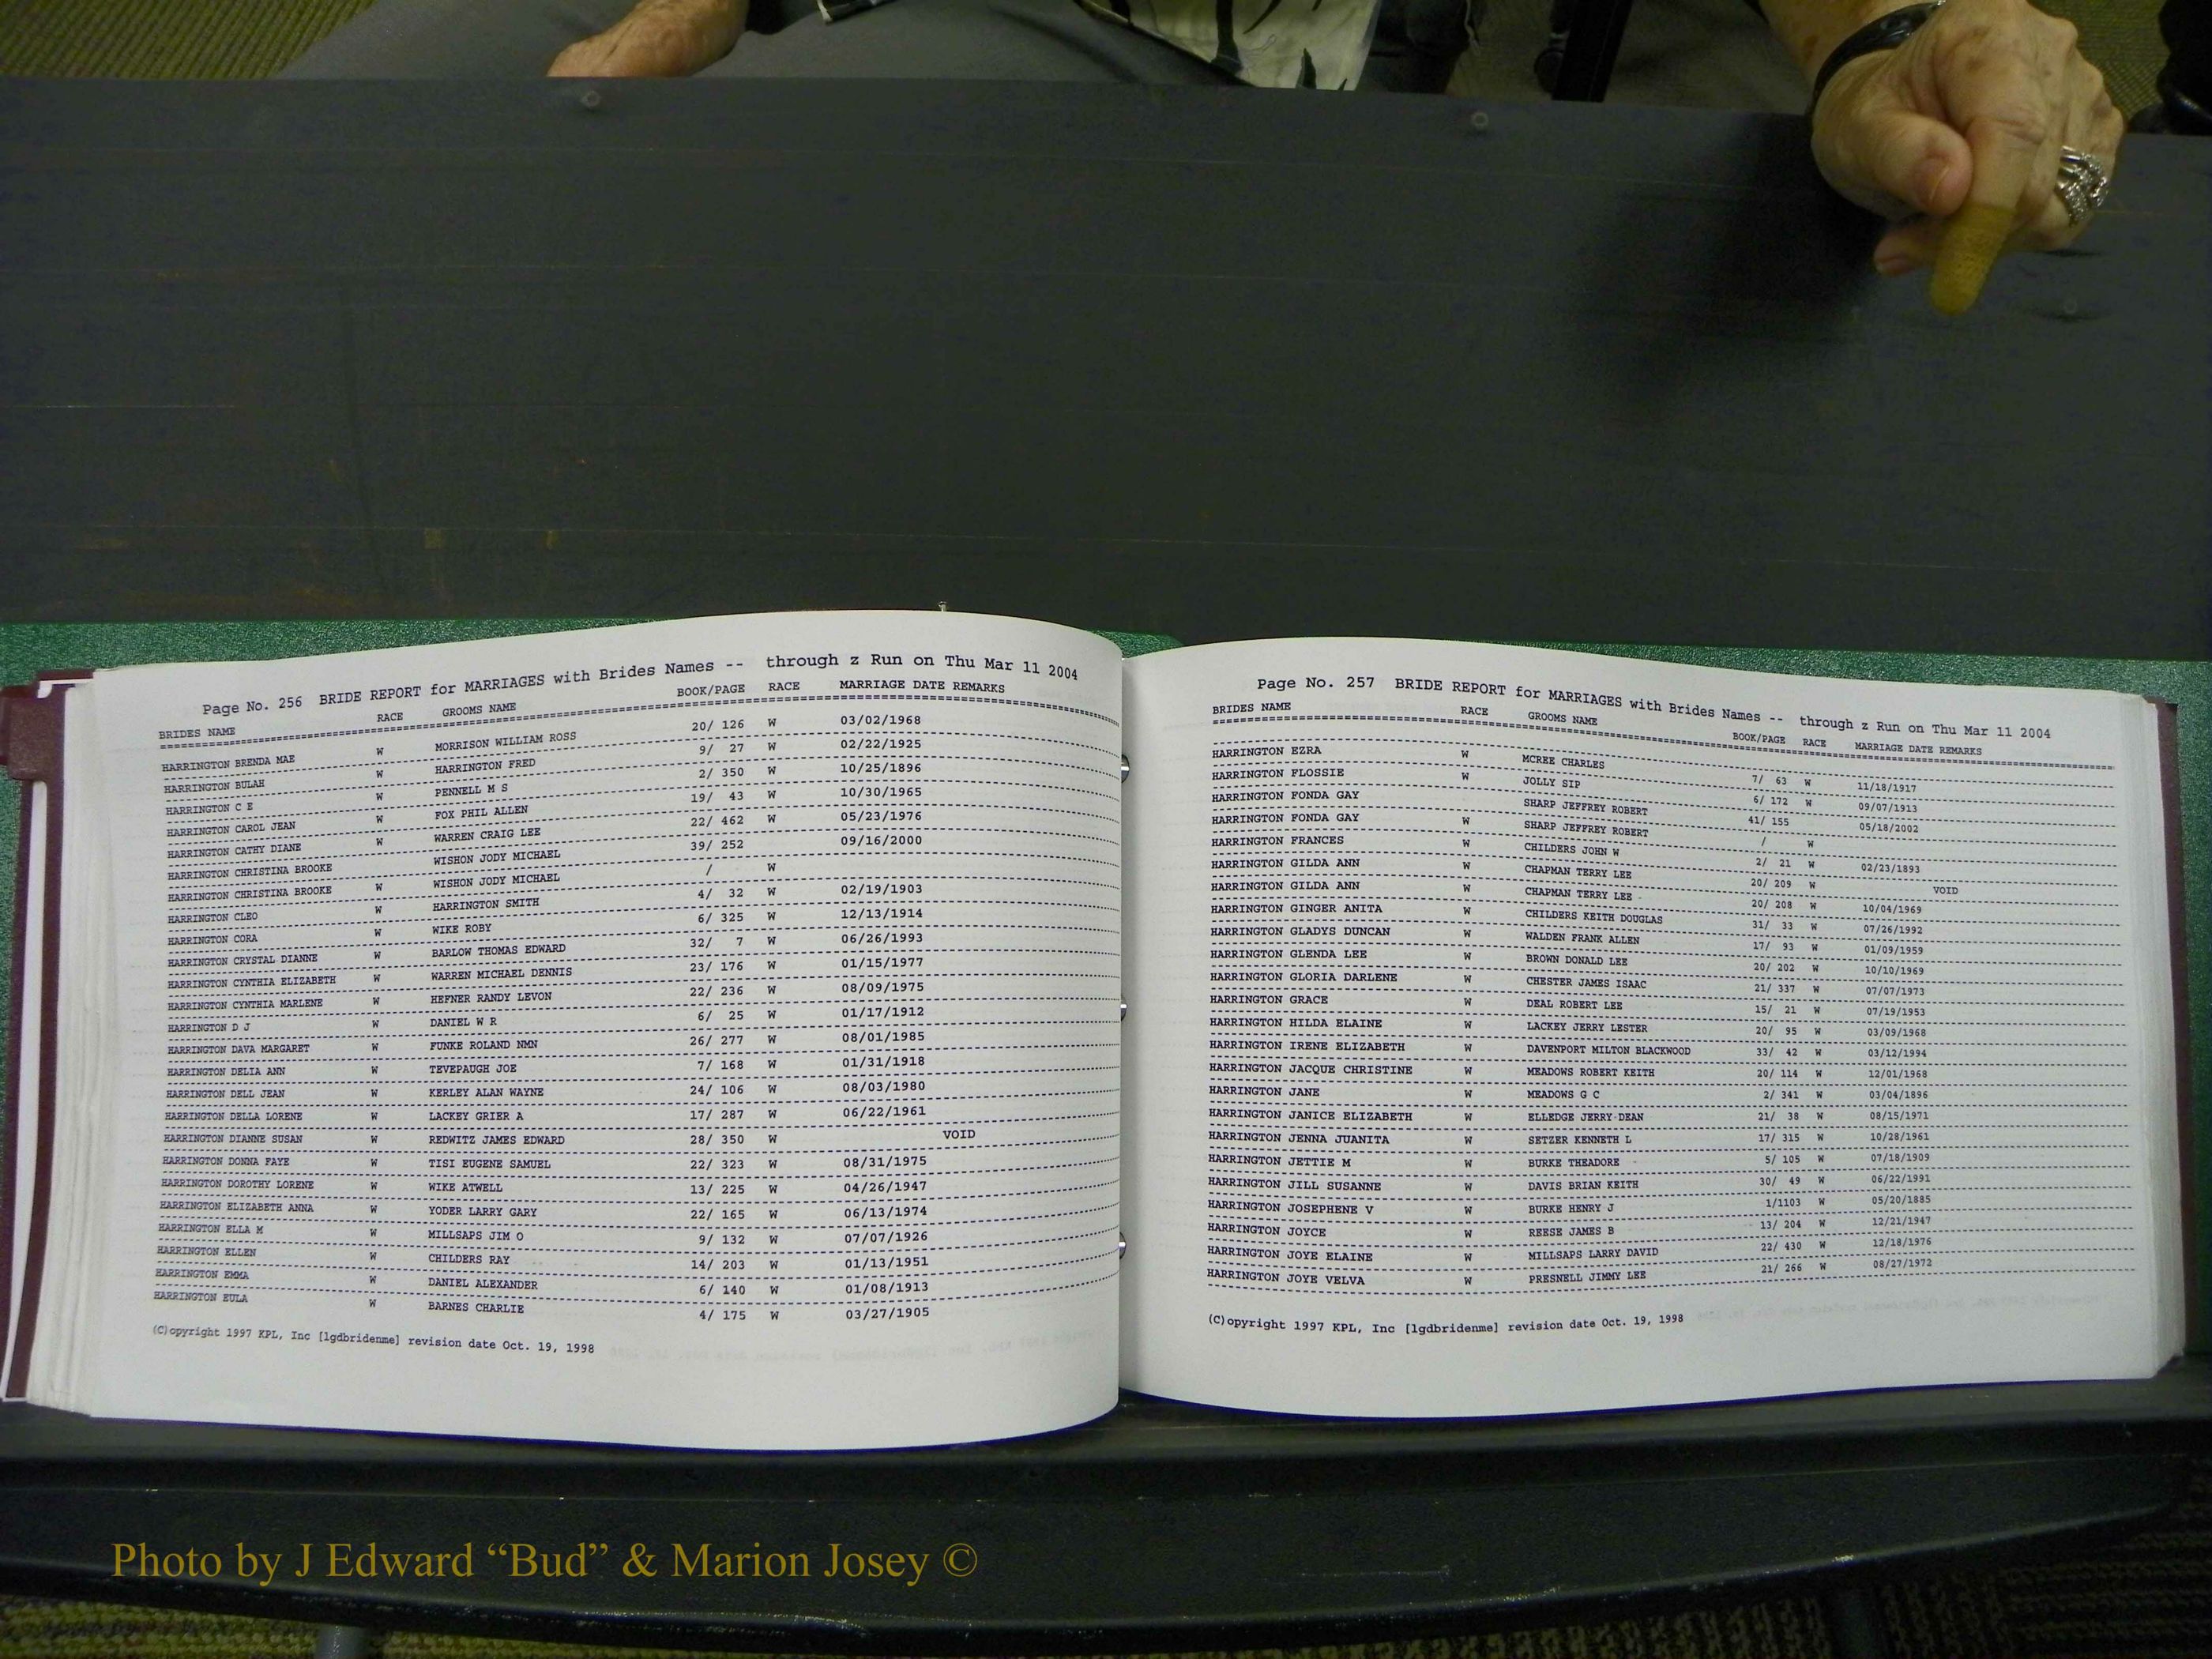 Page No. 256 BRIDE REPORT for MARRIAGES with Brides Names -- through z Run on Thu Mar 11 2004
BRIDES NAME RACE GROOMS NAME BOOK/PAGE RACE MARRIAGE DATE REMARKS
HARRINGTON BRENDA MAE W MORRISON WILLIAM ROSS 20/ 126 W 03/02/1968
HARRINGTON BULAH W HARRINGTON FRED 9/ 27 W 02/22/1925
HARRINGTON C E W PENNELL M S 2/ 350 W 10/25/1896
HARRINGTON CAROL JEAN W FOX PHIL ALLEN 19/ 43 W 10/30/1965
HARRINGTON CATHY DIANE W WARREN CRAIG LEE 22/ 462 W 05/23/1976
HARRINGTON CHRISTINA BROOKE WISHON JODY MICHAEL 39/ 252 09/16/2000
HARRINGTON CHRISTINA BROOKE W WISHON JODY MICHAEL / W
HARRINGTON CLEO W HARRINGTON SMITH 4/ 32 W 02/19/1903
HARRINGTON CORA W WIKE ROBY 6/ 325 W 12/13/1914
HARRINGTON CRYSTAL DIANNE W BARLOW THOMAS EDWARD 32/ 7 W 06/26/1993
HARRINGTON CYNTHIA ELIZABETH W WARREN MICHAEL DENNIS 23/ 176 W 01/15/1977
HARRINGTON CYNTHIA MARLENE W HEFNER RANDY LEVON 22/ 236 W 08/09/1975
HARRINGTON D J W DANIEL W R 6/ 25 W 01/17/1912
HARRINGTON DAVA MARGARET W FUNKE ROLAND NMN 26/ 277 W 08/01/1985
HARRINGTON DELIA ANN W TEVEPAUGH JOE 7/ 168 W 01/31/1918
HARRINGTON DELL JEAN W KERLEY ALAN WAYNE 24/ 106 W 08/03/1980
HARRINGTON DELLA LORENE W LACKEY GRIER A 17/ 287 W 06/22/1961
HARRINGTON DIANNE SUSAN W REDWITZ JAMES EDWARD 28/ 350 W VOID
HARRINGTON DONNA FAYE W TISI EUGENE SAMUEL 22/ 323 W 08/31/1975
HARRINGTON DOROTHY LORENE W WIKE ATWELL 13/ 225 W 04/26/1947
HARRINGTON ELIZABETH ANNA W YODER LARRY GARY 22/ 165 W 06/13/1974
HARRINGTON ELLA M W MILLSAPS JIM O 9/ 132 W 07/07/1926
HARRINGTON ELLEN W CHILDERS RAY 14/ 203 W 01/13/1951
HARRINGTON EMMA W DANIEL ALEXANDER 6/ 140 W 01/08/1913
HARRINGTON EULA W BARNES CHARLIE 4/ 175 W 03/27/1905
(C)opyright 1997 KPL, Inc [lgdbridenme] revision date Oct. 19, 1998
Page No. 257 BRIDE REPORT for MARRIAGES with Brides Names -- through z Run on Thu Mar 11 2004
BRIDES NAME RACE GROOMS NAME BOOK/PAGE RACE MARRIAGE DATE REMARKS
HARRINGTON EZRA W MCREE CHARLES 7/ 63 W 11/18/1917
HARRINGTON FLOSSIE W JOLLY SIP 6/ 172 W 09/07/1913
HARRINGTON FONDA GAY SHARP JEFFREY ROBERT 41/ 155 05/18/2002
HARRINGTON FONDA GAY W SHARP JEFFREY ROBERT / W
HARRINGTON FRANCES W CHILDERS JOHN W 2/ 21 W 02/23/1893
HARRINGTON GILDA ANN W CHAPMAN TERRY LEE 20/ 209 W VOID
HARRINGTON GILDA ANN W CHAPMAN TERRY LEE 20/ 208 W 10/04/1969
HARRINGTON GINGER ANITA W CHILDERS KEITH DOUGLAS 31/ 33 W 07/26/1992
HARRINGTON GLADYS DUNCAN W WALDEN FRANK ALLEN 17/ 93 W 01/09/1959
HARRINGTON GLENDA LEE W BROWN DONALD LEE 20/ 202 W 10/10/1969
HARRINGTON GLORIA DARLENE W CHESTER JAMES ISAAC 21/ 337 W 07/07/1973
HARRINGTON GRACE W DEAL ROBERT LEE 15/ 21 W 07/19/1953
HARRINGTON HILDA ELAINE W LACKEY JERRY LESTER 20/ 95 W 03/09/1968
HARRINGTON IRENE ELIZABETH W DAVENPORT MILTON BLACKWOOD 33/ 42 W 03/12/1994
HARRINGTON JACQUE CHRISTINE W MEADOWS ROBERT KEITH 20/ 114 W 12/01/1968
HARRINGTON JANE W MEADOWS G C 2/ 341 W 03/04/1896
HARRINGTON JANICE ELIZABETH W ELLEDGE JERRY DEAN 21/ 38 W 08/15/1971
HARRINGTON JENNA JUANITA W SETZER KENNETH L 17/ 315 W 10/28/1961
HARRINGTON JETTIE M W BURKE THEADORE 5/ 105 W 07/18/1909
HARRINGTON JILL SUSANNE W DAVIS BRIAN KEITH 30/ 49 W 06/22/1991
HARRINGTON JOSEPHENE V W BURKE HENRY J 1/1103 W 05/20/1885
HARRINGTON JOYCE W REESE JAMES B 13/ 204 W 12/21/1947
HARRINGTON JOYE ELAINE W MILLSAPS LARRY DAVID 22/ 430 W 12/18/1976
HARRINGTON JOYE VELVA W PRESNELL JIMMY LEE 21/ 266 W 08/27/1972
(C)opyright 1997 KPL, Inc [lgdbridenme] revision date Oct. 19, 1998
Photo by J Edward “Bud” & Marion Josey ©